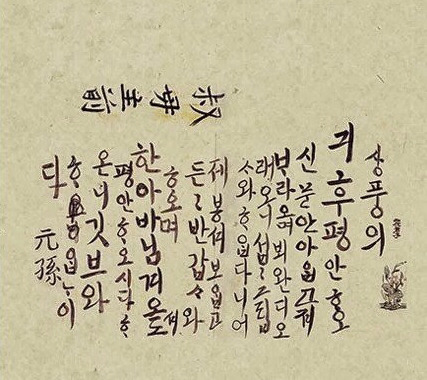 叔母主前
상풍의
긔후평안ᄒᆞ오
신문안아ᄋᆞᆸ고져
ᄇᆞ라오며뵈완디오
래오니섭〻그립
ᄉᆞ와ᄒᆞᄋᆞᆸ다니어
제봉셔보ᄋᆞᆸ고
든〻반갑ᄉᆞ와
ᄒᆞ오며
한아바님겨오셔
평안ᄒᆞ오시다ᄒᆞ
온니깃브와
ᄒᆞᄋᆞᆸᄂᆞ이
다
元孫